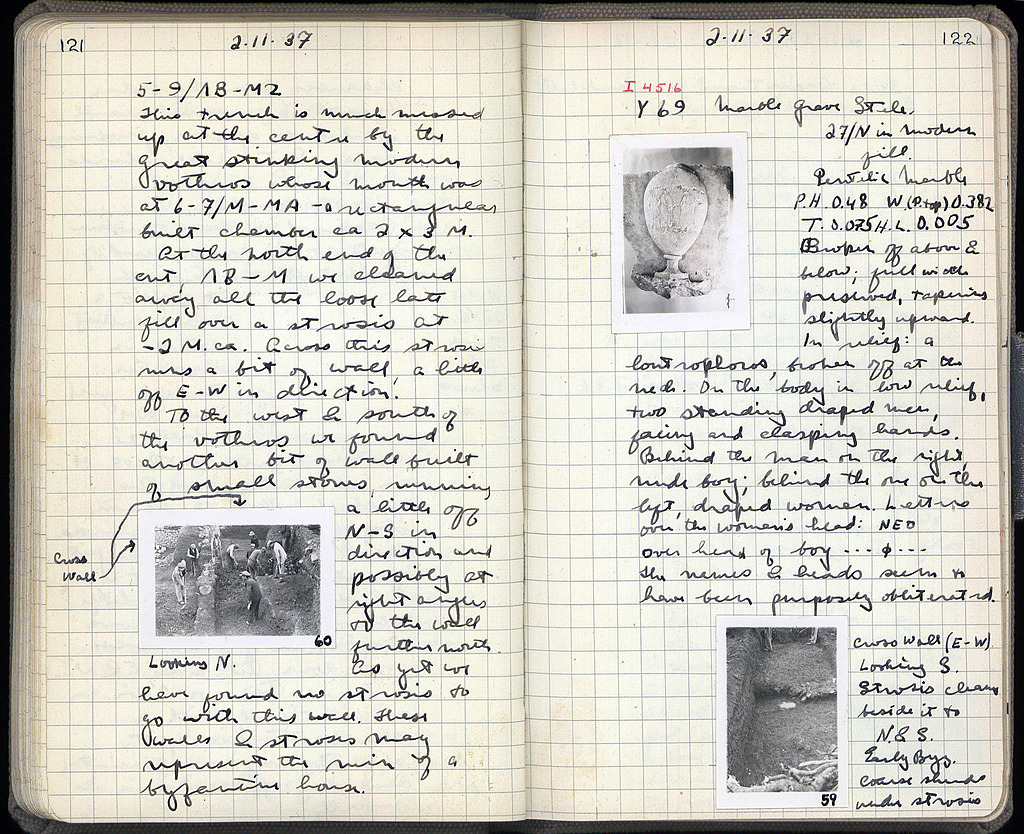 121
2·11·37
5-9/ΛB-MZ
This trench is much messed
up at the centre by the
great stinking modern
vothros whose mouth was
at 6-7/M-MA - a rectangular
built chamber ca 2 x 3 M.
At the north end of the
cut, ΛB-M we cleaned
away all the loose late
fill over a strosis at
-2 M. ca. Across this strosis
runs a bit of wall, a little
off E-W in direction.
To the west & south of
the vothros we found
another bit of wall built
of small stones, running
a little off
N-S in
direction and
possibly at
right angles
to the wall
further north.
As yet we
have found no strosis to
go with this wall. These
walls & strosis may
represent the ruin of a
byzantine house.
Cross
Wall
60
Looking N.
2·11·37
122
I 4516
Y 69 Marble Grave Stele.
27/N in modern
fill.
Pentelic Marble
P.H. 0.48 W (P. top) 0.382
T. 0.075 H.L. 0.005
Broken off above &
below; full width
preserved, tapering
slightly upward.
In relief: a
loutrophoros, broken off at the
neck. On the body in low relief,
two standing draped men,
facing and clasping hands.
Behind the man on the right,
nude boy; behind the one on the
left, draped woman. Letters
over the woman's head: NEO
over head of boy ---φ---
The names & heads seem to
have been purposely obliterated.
59
Cross Wall (E-W)
Looking S.
Strosis cleaned
beside it to
N. & S.
Early Byz.
coarse sherds
under strosis